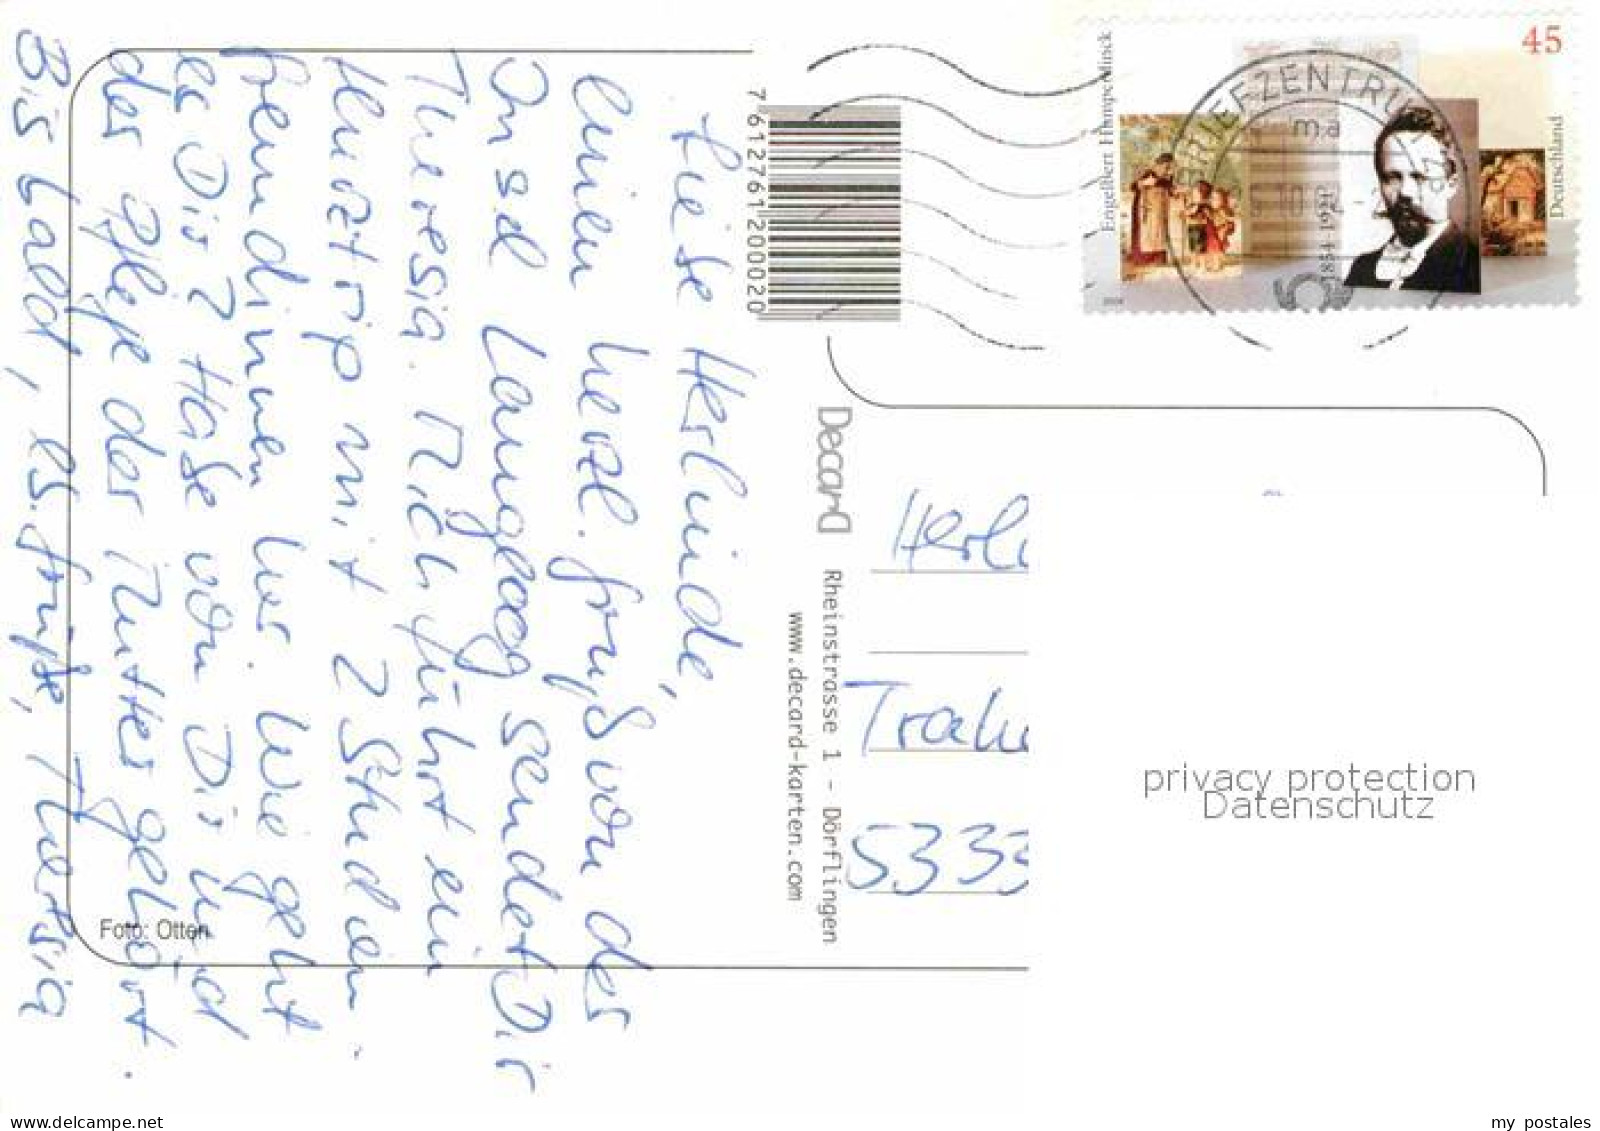 Liebe Herlinde,
einen herzl. Gruß von der
Insel Langeoog sendet Dir
Theresia. Mich führt ein
Kurztrip mit 2 Studien
freundinnen her. Wie geht
es Dir? Habe von Dir und
der Pflege der Mutter gehört.
Bis bald, es grüßt, Theresia
Foto: Otten
7 612761 200020
Decard Rheinstrasse 1 - Dörflingen
www.decard-karten.com
Engelbert Humperdinck
1854-1921
45
Deutschland
BRIEFZENTRUM
Herli
5333
privacy protection
Datenschutz
www.delcampe.net
my postales